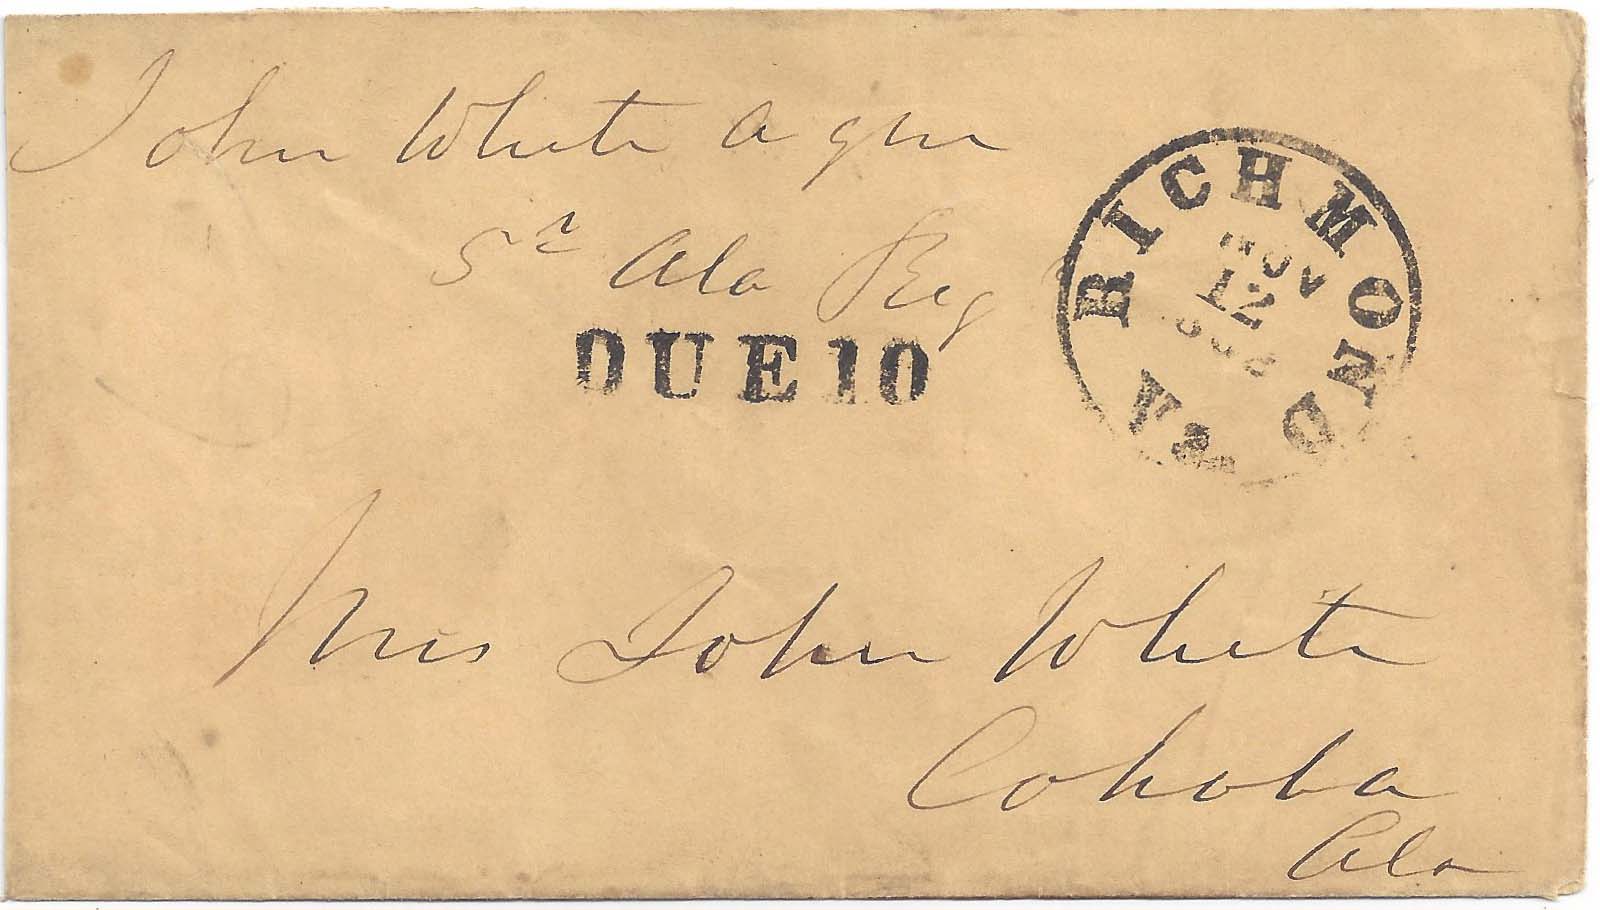 John White a qm
5th Ala Reg
DUE 10
RICHMOND Va.
NOV
12
Mrs John White
Cahaba
Ala